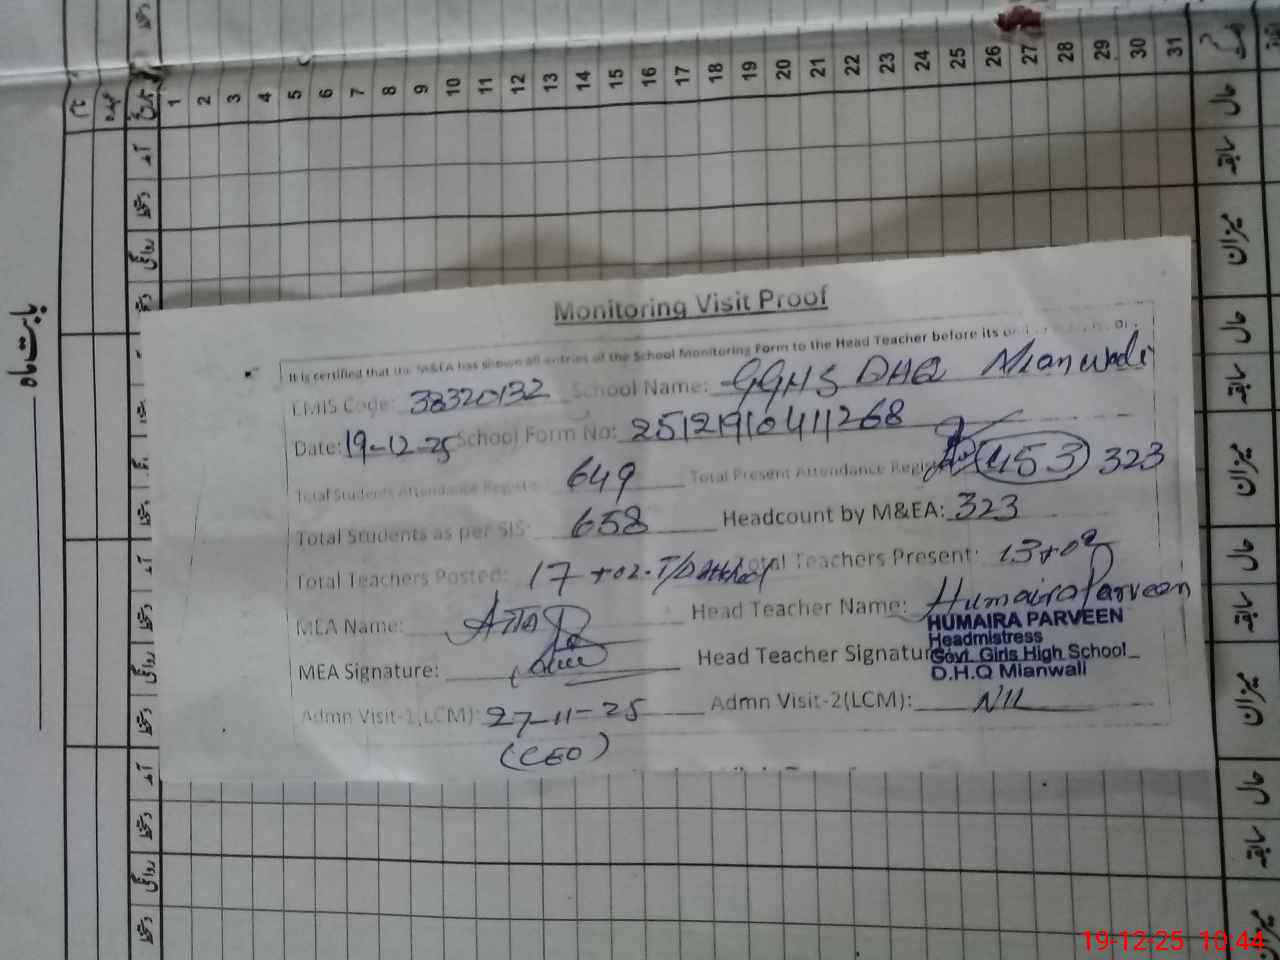 بابت ماہ
نام
عہدہ
تاریخ
1 2 3 4 5 6 7 8 9 10 11 12 13 14 15 16 17 18 19 20 21 22 23 24 25 26 27 28 29 30 31
حال
سابقہ
میزان
حال
سابقہ
میزان
حال
سابقہ
میزان
حال
سابقہ
Monitoring Visit Proof
It is certified that the M&EA has shown all entries of the School Monitoring Form to the Head Teacher before its
EMIS Code: 38320132 School Name: GGHS DHQ Mianwali
Date: 19-12-25 School Form No: 2512191041126 8
Total Students Attendance Register: 649 Total Present Attendance Regist 453 323
Total Students as per SIS: 658 Headcount by M&EA: 323
Total Teachers Posted: 17 +02. T/D Total Teachers Present: 13+02
MEA Name: Head Teacher Name: Humaira Parveen
HUMAIRA PARVEEN
Headmistress
MEA Signature: Head Teacher Signatur
Govt. Girls High School
D.H.Q Mianwali
Admn Visit-1(LCM): 27-11-25 Admn Visit-2(LCM): NIL
(CEO)
19-12-25 10:44